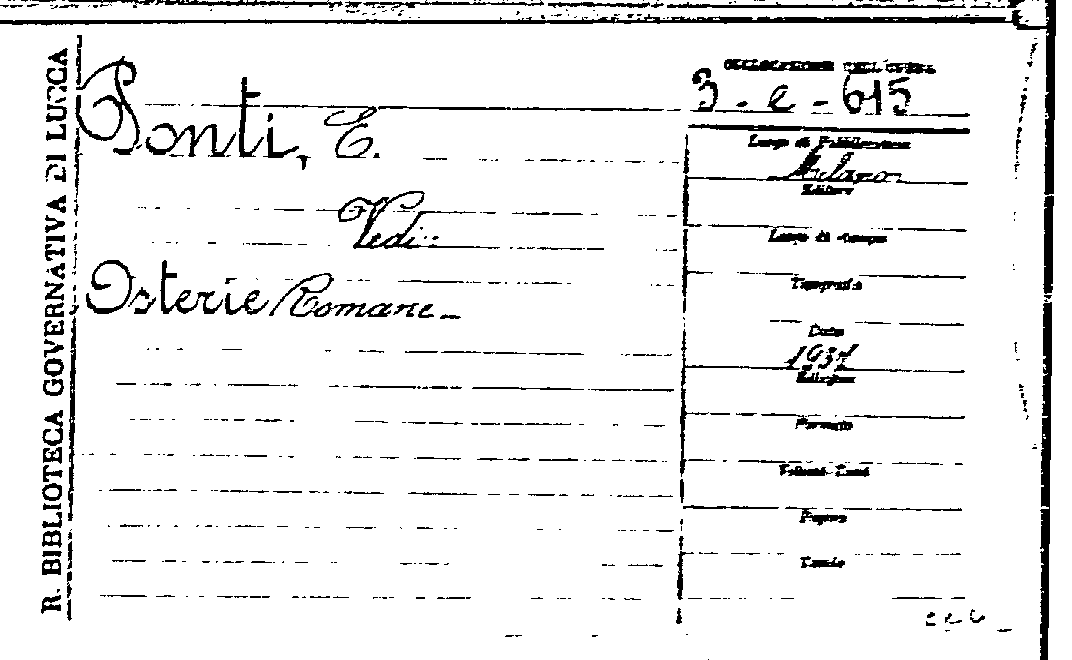 R. BIBLIOTECA GOVERNATIVA DI LUCCA
Ponti, E.
Vedi:
Osterie Romane
COLLOCAZIONE DELL'OPERA
3 - e - 615
Luogo di Pubblicazione
Milano
Editore
Luogo di stampa
Tipografia
Data
1937
Edizione
Formato
Volumi
Pagine
Tavole